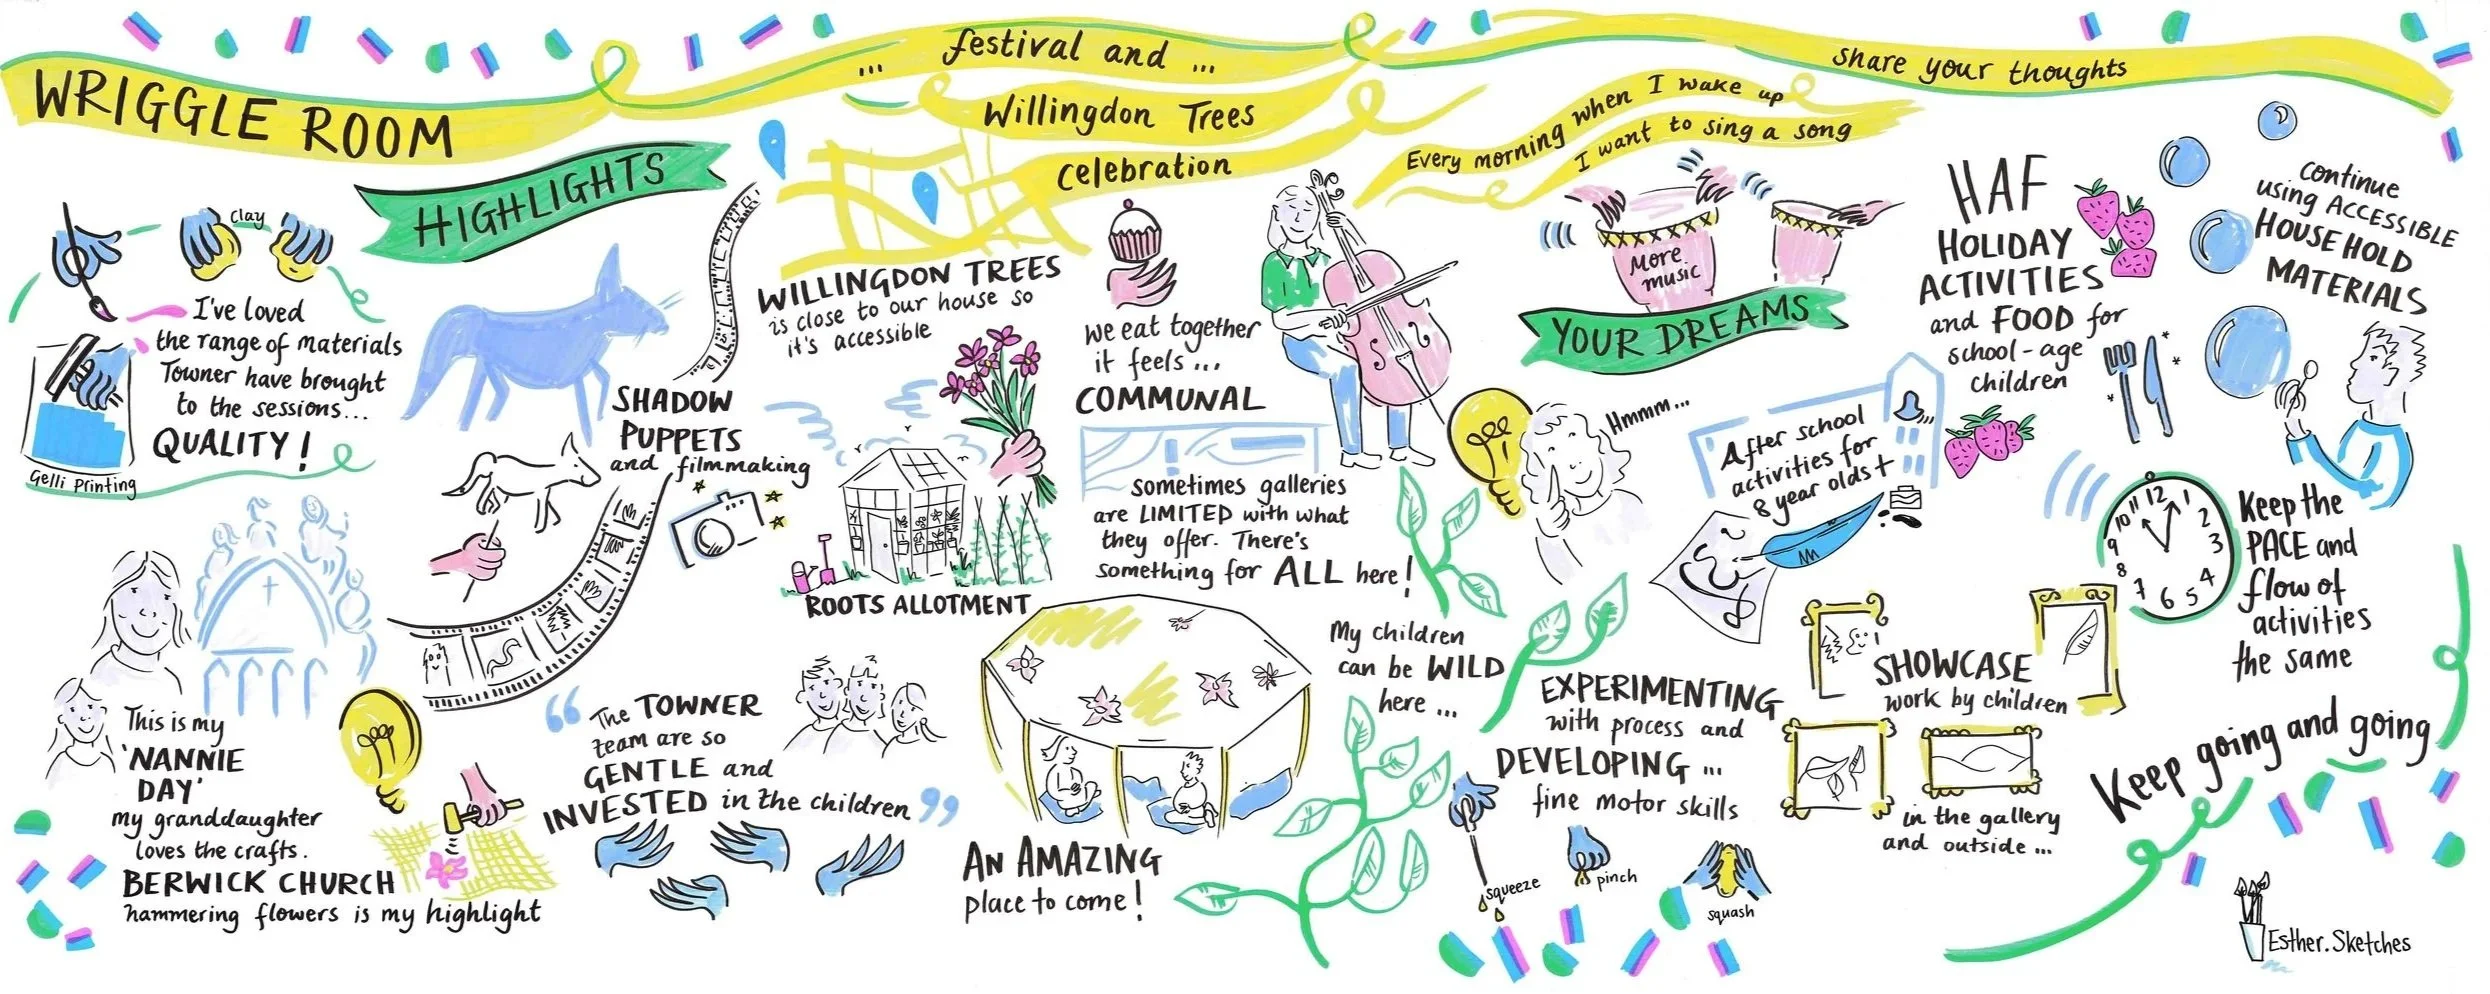 WRIGGLE ROOM
... festival and ...
Willingdon Trees
celebration
share your thoughts
HIGHLIGHTS
clay
I've loved
the range of materials
Towner have brought
to the sessions...
QUALITY!
Gelli printing
SHADOW
PUPPETS
and filmmaking
This is my
'NANNIE
DAY'
my granddaughter
loves the crafts.
BERWICK CHURCH
hammering flowers is my highlight
“The TOWNER
team are so
GENTLE and
INVESTED in the children”
WILLINGDON TREES
is close to our house so
it's accessible
ROOTS ALLOTMENT
we eat together
it feels ...
COMMUNAL
sometimes galleries
are LIMITED with what
they offer. There's
something for ALL here!
My children
can be WILD
here ...
AN AMAZING
place to come!
Every morning when I wake up
I want to sing a song
More
music
YOUR DREAMS
Hmmm...
After school
activities for
8 year olds +
HAF
HOLIDAY
ACTIVITIES
and FOOD for
school-age
children
continue
using ACCESSIBLE
HOUSEHOLD
MATERIALS
12
1
2
3
4
5
6
7
8
9
10
11
Keep the
PACE and
flow of
activities
the same
EXPERIMENTING
with process and
DEVELOPING ...
fine motor skills
squeeze
pinch
squash
SHOWCASE
work by children
in the gallery
and outside ...
Keep going and going
Esther.Sketches